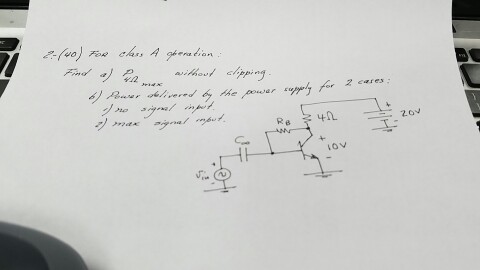 2-(40) For class A operation:
Find a) P4Ω max without clipping.
b) Power delivered by the power supply for 2 cases:
1) no signal input.
2) max signal input.
RB
4Ω
+
20V
-
C∞
+
10V
-
+
Vin
-